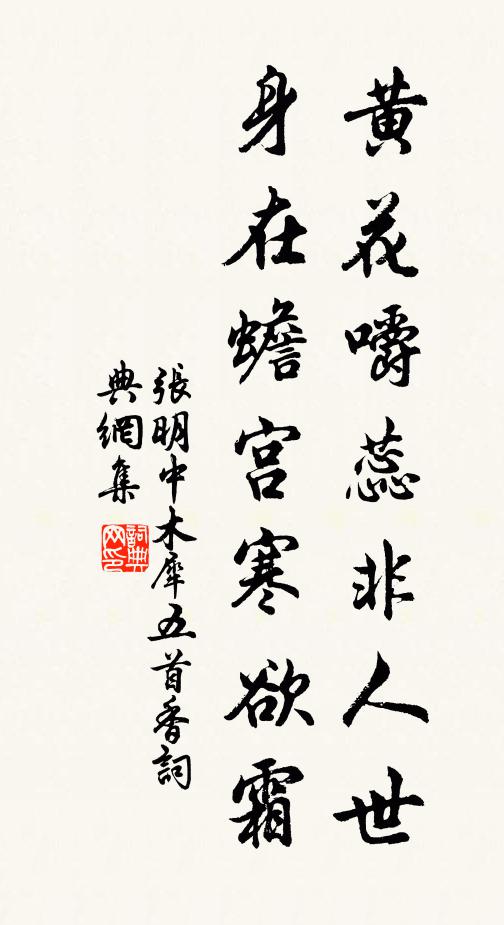 黄花嚼蕊非人世
身在蟾宫寒欲霜
張明中木犀五首香詞
典網集
詞典网印